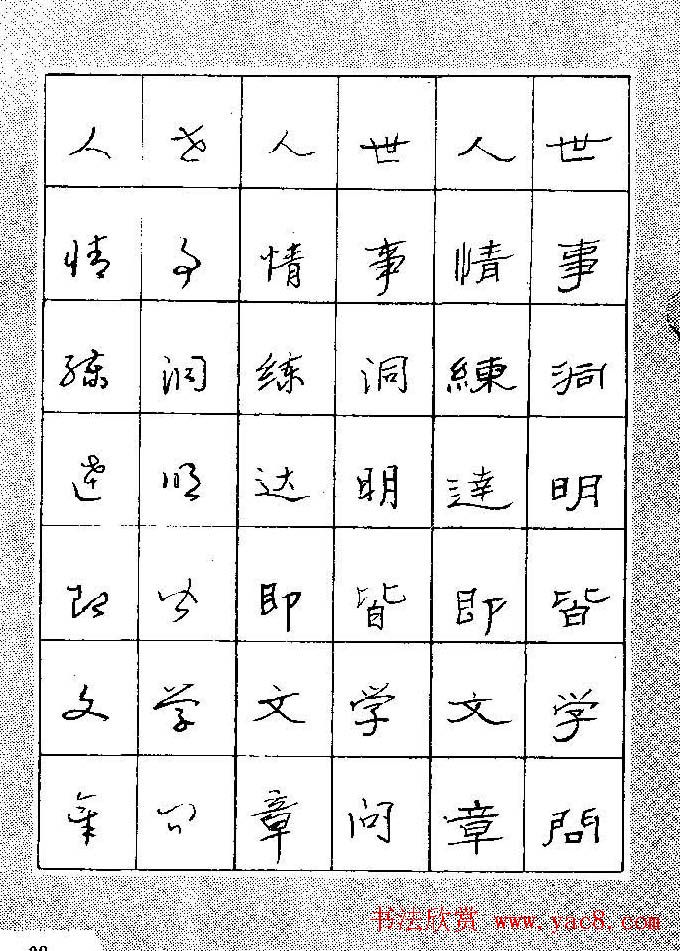 世事洞明皆学問
人情練達即文章
世事洞明皆学问
人情练达即文章
世事洞明皆学问
人情练达即文章
书法欣赏 www.yac8.com